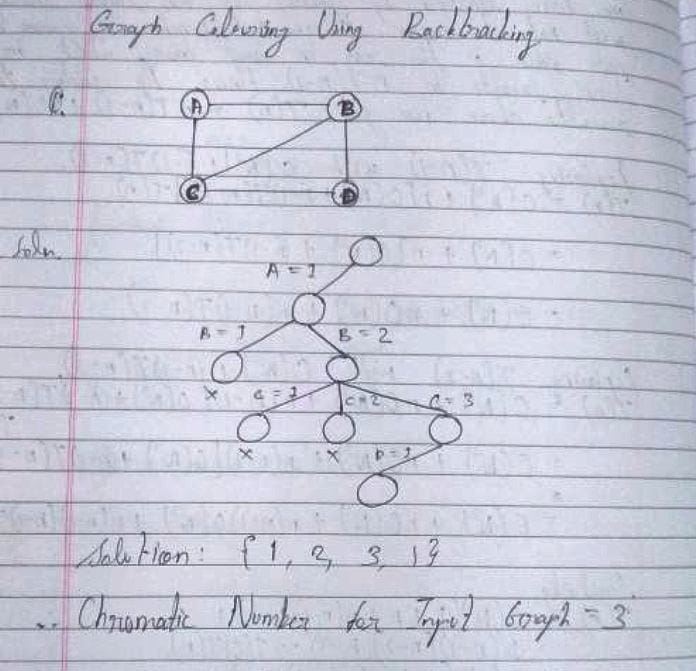 Graph Colouring Using Backtracking
Q.
A B
C D
Soln.
A = 1
B = 1 B = 2
x C = 1 C = 2 C = 3
x x D = 1
Solution: {1, 2, 3, 1}
∴ Chromatic Number for Input Graph = 3